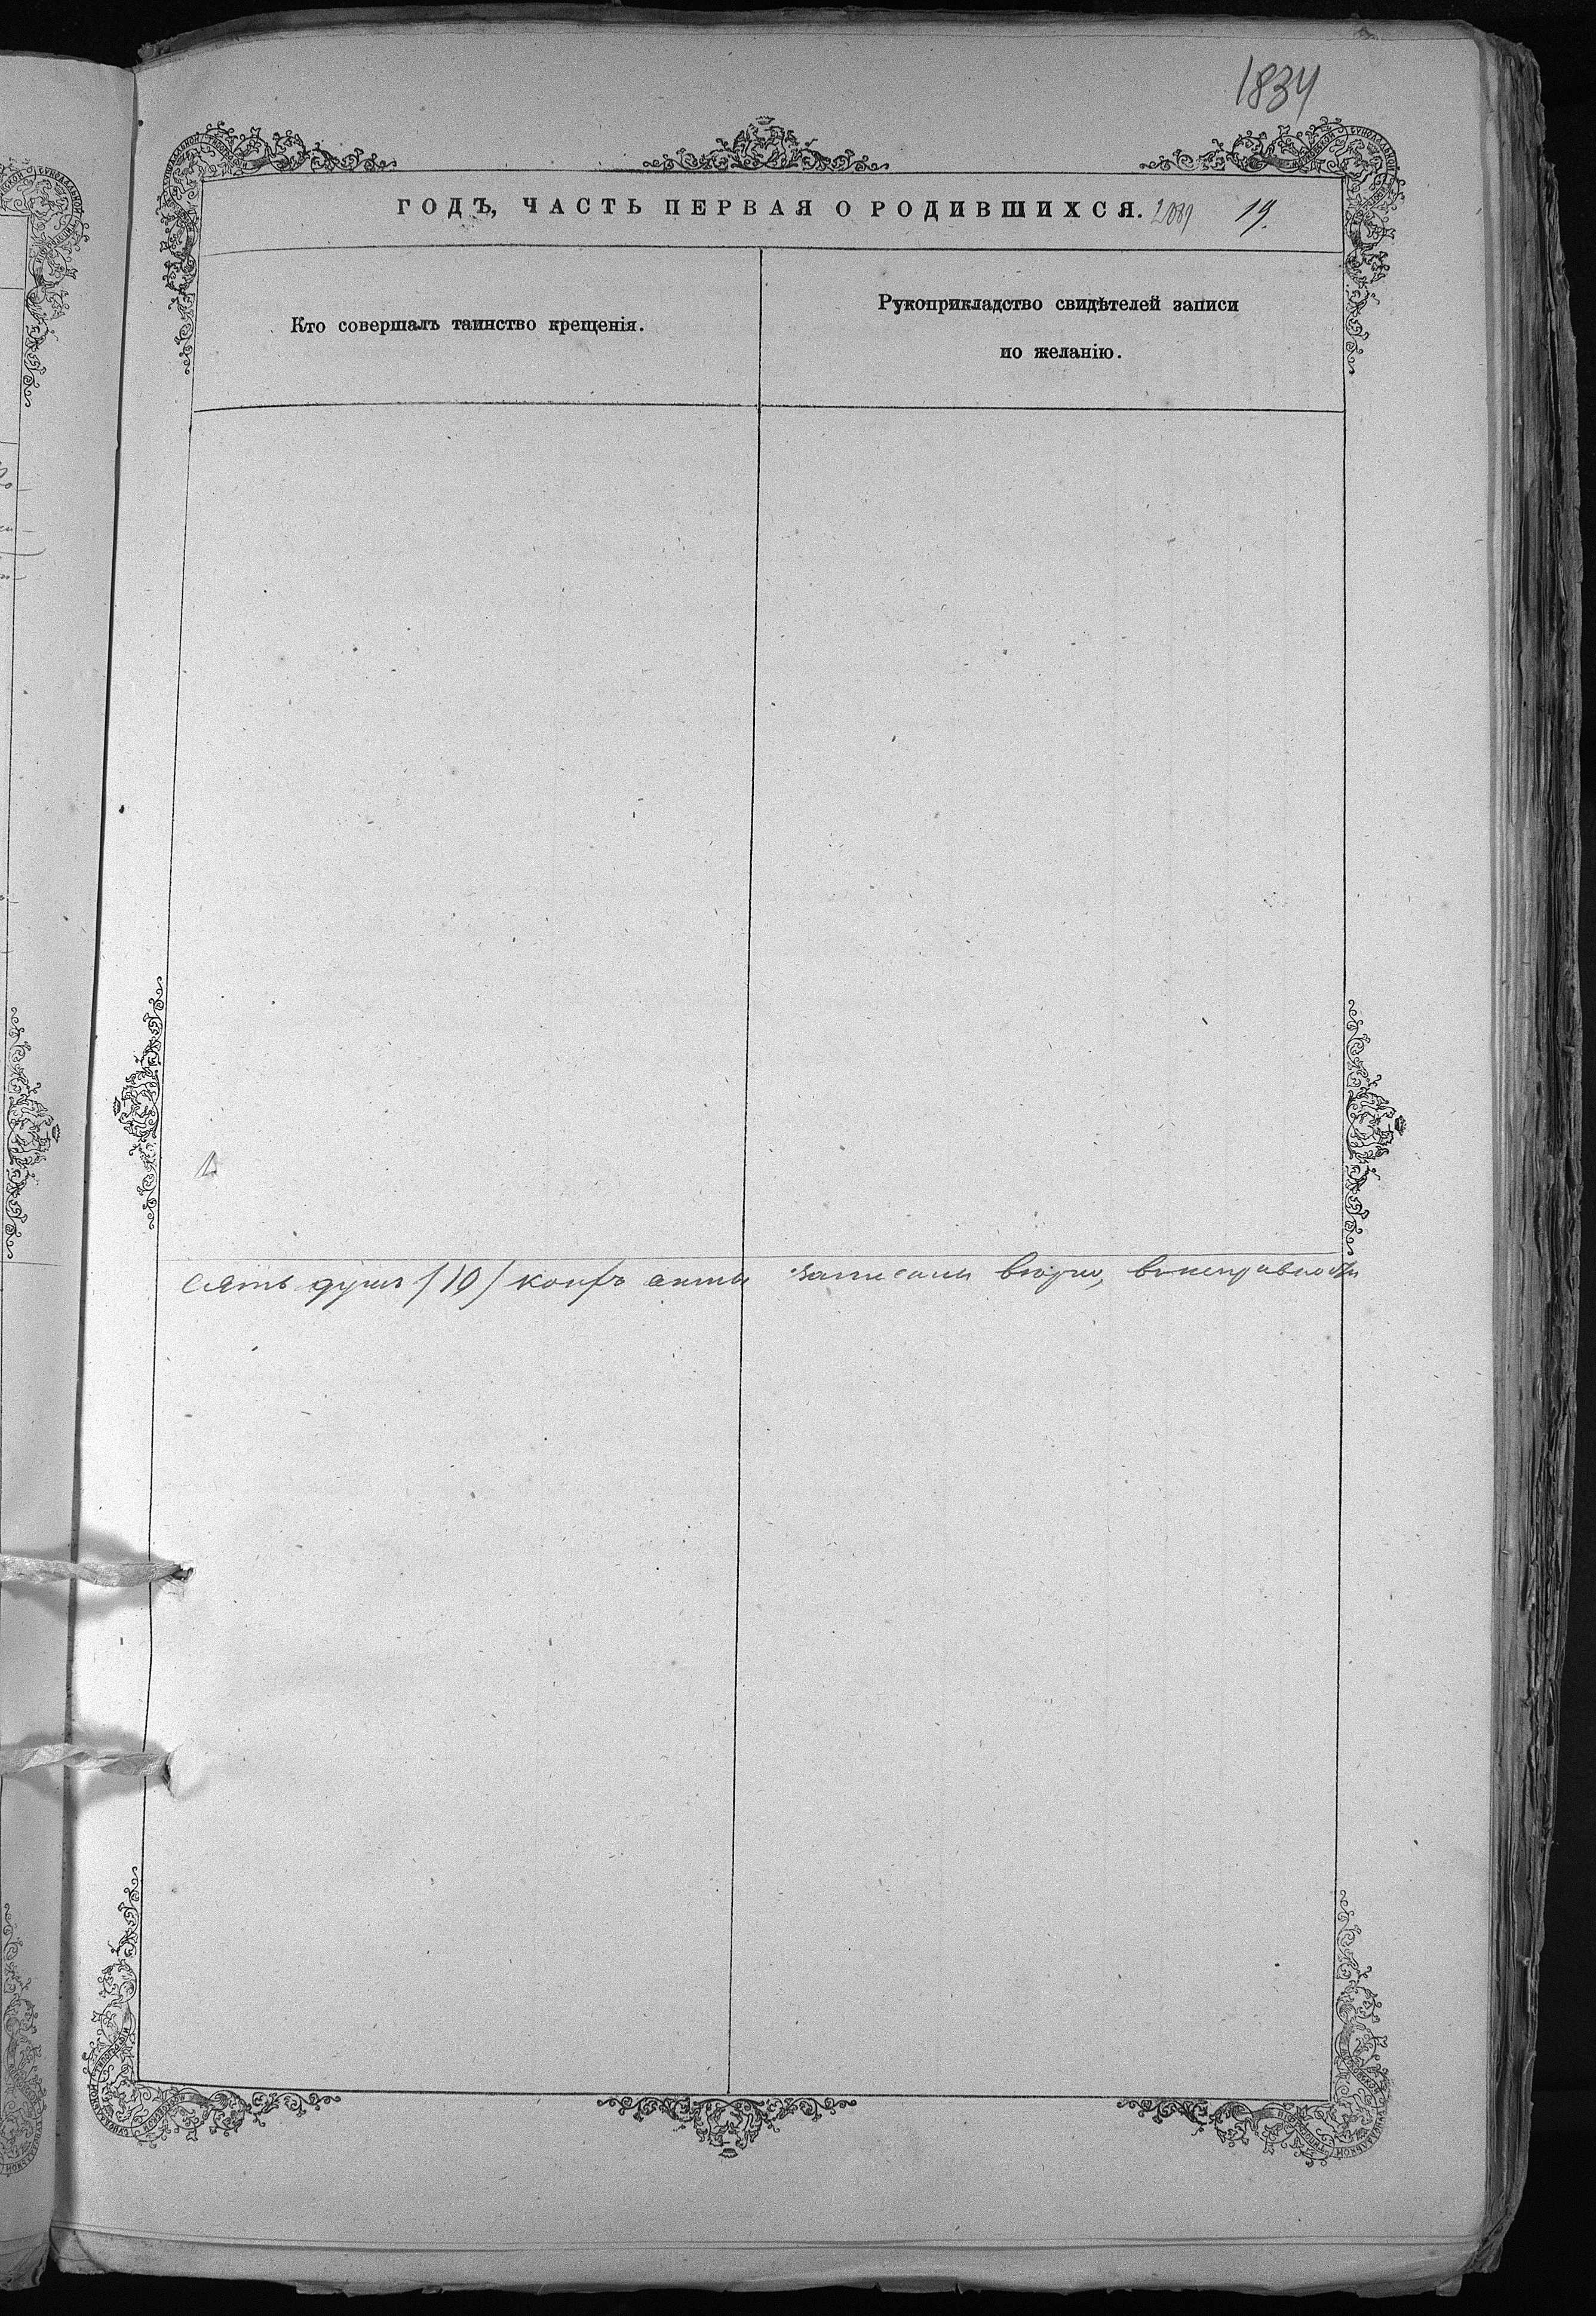 1834
ГОДЪ, ЧАСТЬ ПЕРВАЯ О РОДИВШИХСЯ. 19.
Кто совершалъ таинство крещенія.
Рукоприкладство свидѣтелей записи
по желанію.
сять душъ /10/ коихъ акты записаны вѣрно, въ исправности